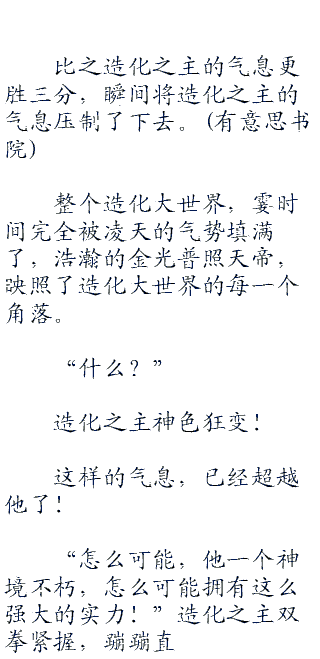 比之造化之主的气息更
胜三分，瞬间将造化之主的
气息压制了下去。(有意思书
院)
整个造化大世界，霎时
间完全被凌天的气势填满
了，浩瀚的金光普照天帝，
映照了造化大世界的每一个
角落。
“什么？”
造化之主神色狂变！
这样的气息，已经超越
他了！
“怎么可能，他一个神
境不朽，怎么可能拥有这么
强大的实力！”造化之主双
拳紧握，蹦蹦直